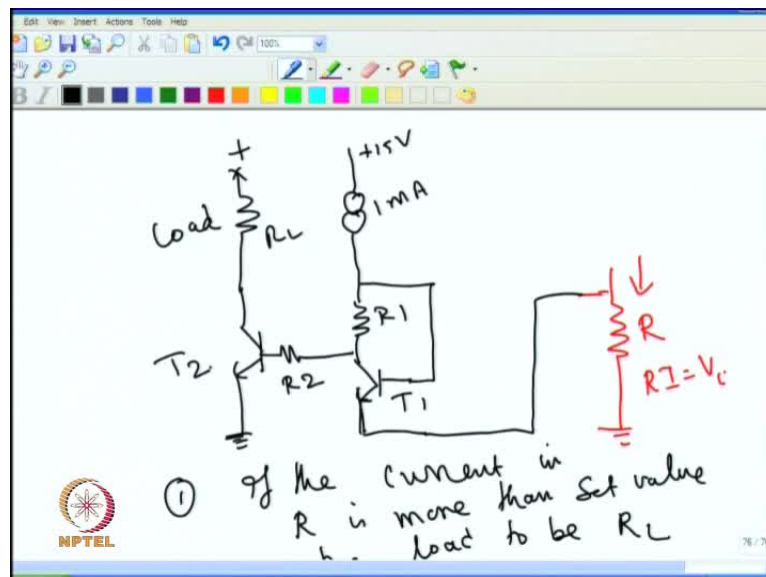 Edit View Insert Actions Tools Help
100%
B I
+
+15V
1mA
Load
RL
R1
R
RI = Vi
T2
R2
T1
① If the current in
R is more than set value
load to be RL
NPTEL